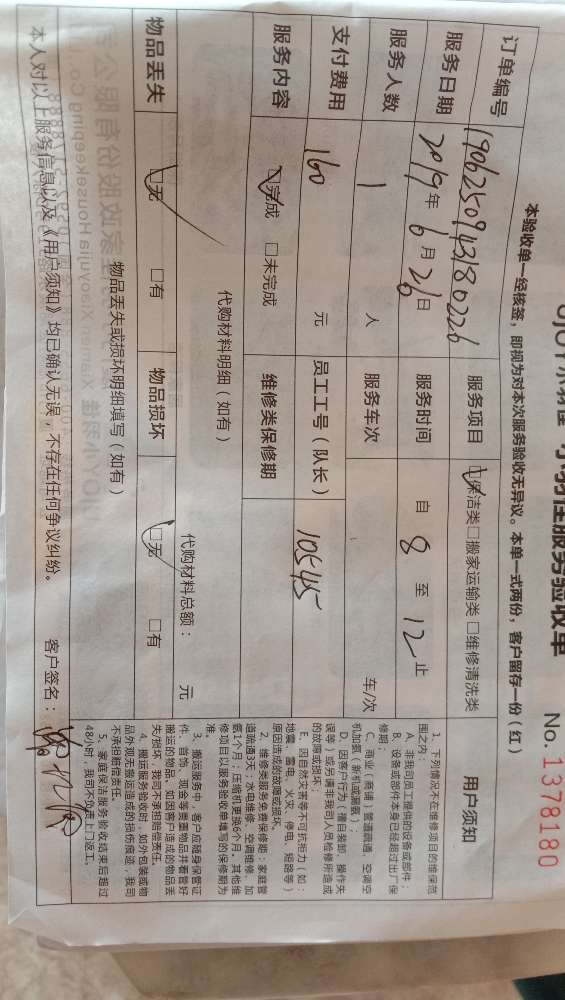 小羽佳服务验收单
No. 1378180
本验收单一经核签，即视为对本次服务验收无异议。本单一式两份，客户留存一份（红）
订单编号 1906250943180226 服务项目 ☑保洁类□搬家运输类□维修清洗类
服务日期 2019年6月26日 服务时间 自 8 至 12 止
服务人数 1 人 服务车次 车/次
支付费用 160 元 员工工号（队长） 10545
服务内容 ☑完成 □未完成 维修类保修期
代购材料明细（如有） 代购材料总额： 元
物品丢失 ☑无 □有 物品损坏 ☑无 □有
物品丢失或损坏明细填写（如有）
本人对以上服务信息以及《用户须知》均已确认无误，不存在任何争议纠纷。 客户签名：
用户须知
1、下列情况不在维修项目的维保范
围之内：
A、非我司员工提供的设备或部件；
B、设备或部件本身已经超过出厂保
修期；
C、商业（商铺）管道疏通、空调空
机加氨（新机或漏氨）；
D、因客户行为（擅自装卸、操作失
误等）或另请非我司人员检修所造成
的故障或损坏；
E、因自然灾害等不可抗拒力（如：
地震、雷电、火灾、停电、短路等）
原因造成的故障或损坏。
2、维修类服务免费保修期：家庭管
道疏通3天；水电维修、空调维修、加
氨1个月；压缩机更换6个月。其他维
修项目以服务验收单填写的保修期为
准。
3、搬运服务中，客户应随身保管证
件、首饰、现金等贵重物品并看管好
搬运的物品，如因客户造成的物品丢
失/损坏，我司不承担赔偿责任。
4、搬运服务验收时，如外包装或物
品外观无搬运造成的损伤痕迹，我司
不承担赔偿责任。
5、家庭保洁服务验收结束后超过
48小时，我司不负责上门返工。